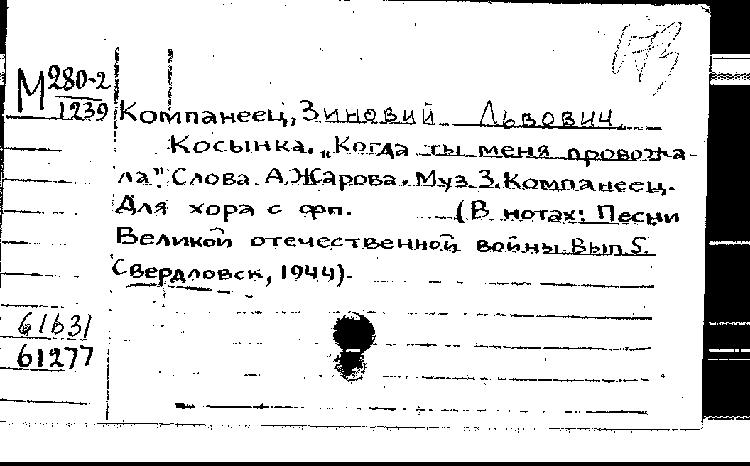 М 280-2
1239
Компанеец, Зиновий Львович
Косынка. „Когда ты меня провожа-
ла". Слова А.Жарова. Муз. З.Компанеец.
Для хора с фп. (В нотах: Песни
Великой отечественной войны. Вып.5.
Свердловск, 1944).
61631
61277